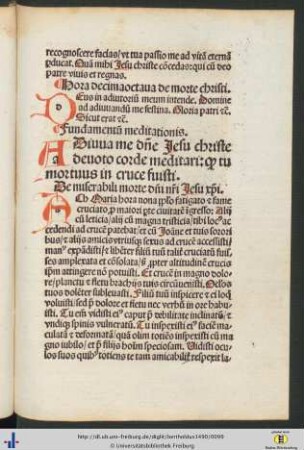 recognoscere facias/ vt tua passio me ad vitā eternā
ꝑducat. Quā mihi Jesu christe cōcedas: qui cū deo
patre viuis et regnas.
Hora decimaoctaua de morte christi.
Deus in adiutoriū meum intende. Domine
ad adiuuandū me festina. Gloria patri ⁊c̄.
Sicut erat ⁊c̄.
Fundamentū meditationis.
Adiuua me dn̄e Jesu christe
deuoto corde meditari: ꝙ tu
mortuus in cruce fuisti.
De miserabili morte dn̄i nr̄i Jesu xp̄i.
Ach Maria hora nona fatigato ⁊ fame
cruciato ꝓ maiori ciuitatē īgressor Alij
cū leticia/ alij cū magna tristicia/ tibi loc⁹ ac
cedendi ad crucē patebat: et cū Joāne et tuis soro
rib⁹ ⁊ alijs amicis vtriusq̄ sexus ad crucē accessisti/
man⁹ expādisti/ ⁊ libēter filiū tuū talit̄ cruciatū fuis
ses amplexata et cōsolata ꝓpter altitudinē crucis
ip̄m attingere nō potuisti. Et crucē in magno dolo
re/ planctu ⁊ fletu brachijs tuis circūienisti.
tuos dolēter subleuasti. Filiū tuū inspicere ⁊ ei loq̄
voluisti/ sed p̄ dolore et fletu nec verbū in ore habu⸗
isti. Tu eī vidisti ei⁹ caput p̄ debilitate inclinatū/ ⁊
vndiq̄ spinis vulneratū. Tu inspexisti ei⁹ faciē ma⸗
culatā ⁊ deformatā/ quā olim totiēs inspexisti cū ma
gno iubilo/ et ꝓ filijs hoīm speciosam. Vidisti ocu⸗
los suos quib⁹ totiens te tam amicabilit̄ respexit la⸗
http://dl.ub.uni-freiburg.de/diglit/bertholdus1490/0099
© Universitätsbibliothek Freiburg